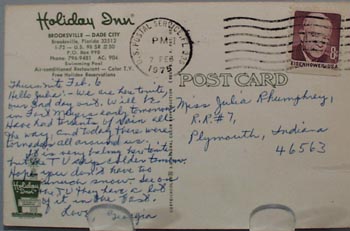 Holiday Inn
BROOKSVILLE — DADE CITY
Brooksville, Florida 33512
I-75 — U.S. 98 SR 50
P.O. Box 998
Phone 796-9481 AC: 904
Swimming Pool
Air-conditioned Restaurant — Color T.V.
Free Holiday Reservations
U.S. POSTAL SERVICE, FL
PM
7 FEB
1975
EISENHOWER USA
8
POST CARD
Thurs. nite Feb. 6
Hello Julia: - We are here tonite,
our 2nd day out. Will be
in Fort Myers early tomorrow.
Have had of rain all
the way, and today there were
tornadoes all around us.
It is very balmy here tonite
but the TV says colder tomorrow.
Hope you don't have too
much snow. See on
the TV they have a lot
of it in the East.
Love, Georgia
Miss Julia Rhumphrey,
R.R. #7,
Plymouth, Indiana
46563
Holiday Inn